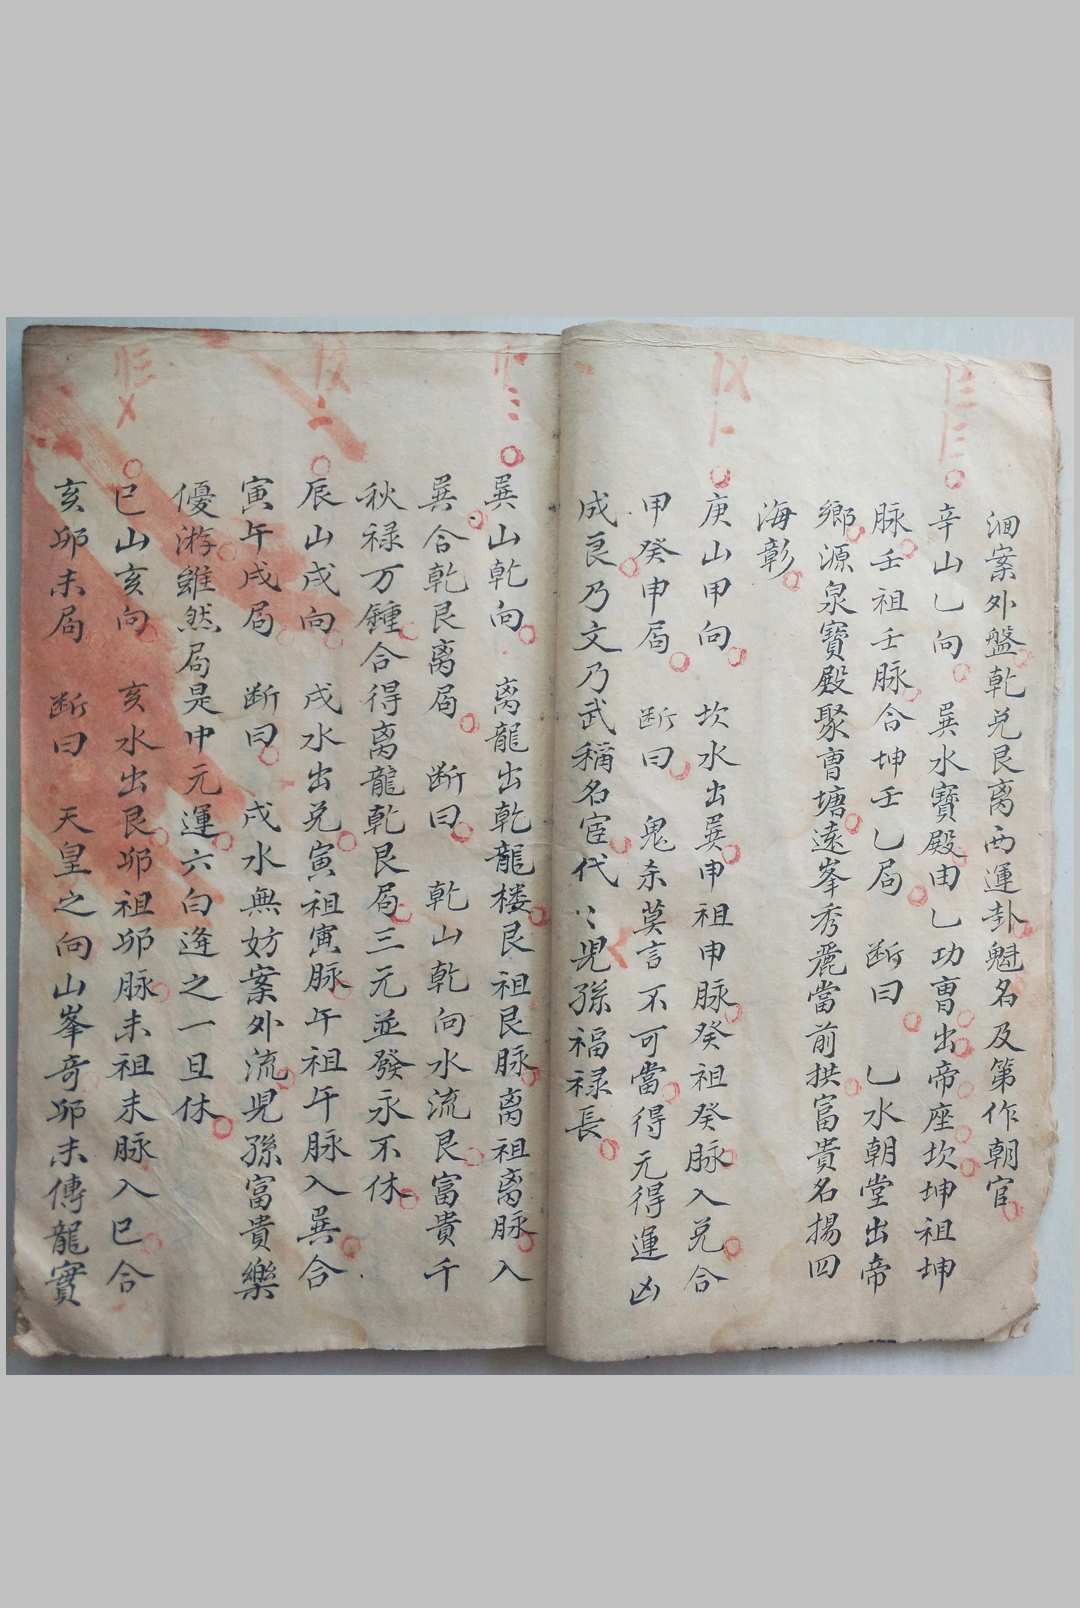 洄案外盤乾兑艮离两運卦魁名及第作朝官
辛山乙向 巽水寶殿由乙功曹出帝座坎坤祖坤
脉壬祖壬脉合坤壬乙局 断曰 乙水朝堂出帝
鄉源泉寶殿聚曹塘遠峯秀麗當前拱富貴名揚四
海彰
庚山甲向 坎水出巽申祖申脉癸祖癸脉入兑合
甲癸申局 断曰 鬼杀莫言不可當得元得運凶
成良乃文乃武稱名宦代〻児孫福禄長
巽山乾向 离龍出乾龍楼艮祖艮脉离祖离脉入
巽合乾艮离局 断曰 乾山乾向水流艮富貴千
秋禄万鍾合得离龍乾艮局三元並發永不休
辰山戌向 戌水出兑寅祖寅脉午祖午脉入巽合
寅午戌局 断曰 戌水無妨案外流児孫富貴樂
優游雖然局是中元運六白逢之一旦休
巳山亥向 亥水出艮卯祖卯脉未祖未脉入巳合
亥卯未局 断曰 天皇之向山峯奇卯未傳龍實